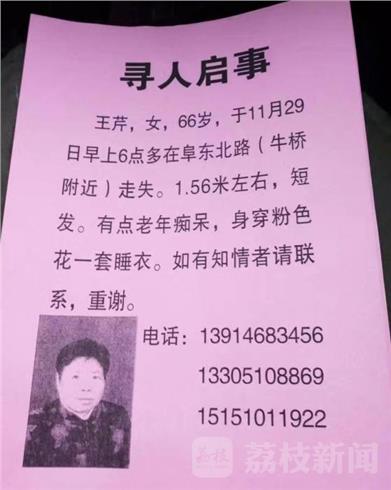 寻人启事
王芹，女，66岁，于11月29
日早上6点多在阜东北路（牛桥
附近）走失。1.56米左右，短
发。有点老年痴呆，身穿粉色
花一套睡衣。如有知情者请联
系，重谢。
电话：13914683456
13305108869
15151011922
荔枝 荔枝新闻